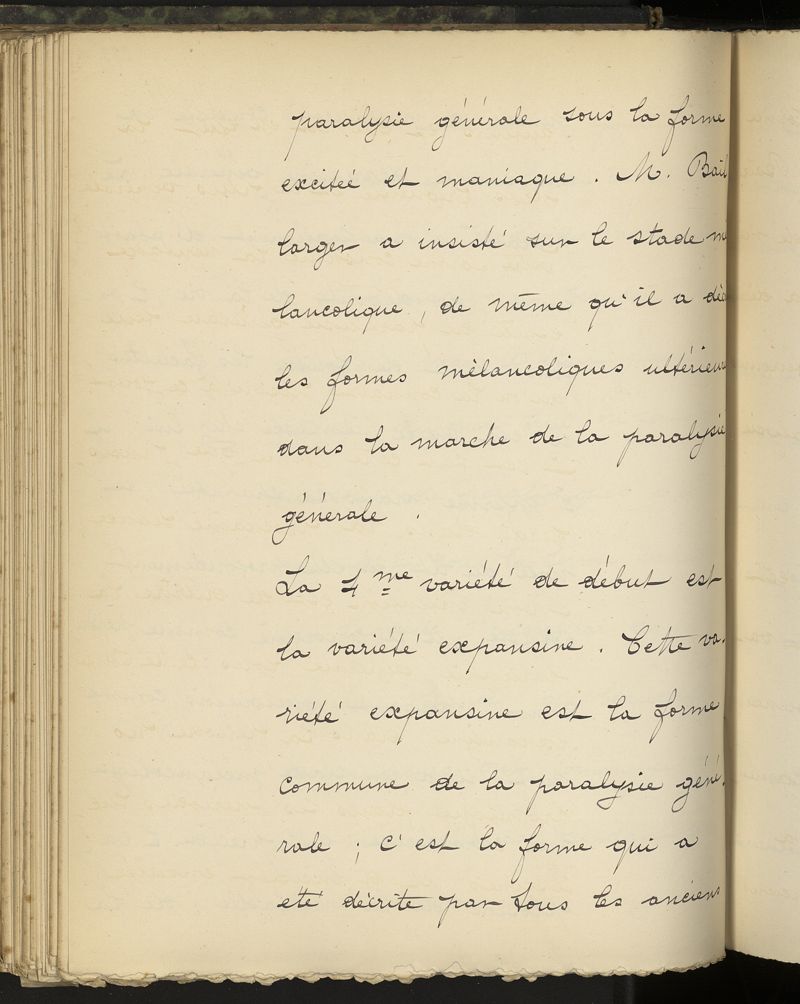 paralysie générale sous la forme
exciteé et maniaque. M. Bail
larger a insisté sur le stade mé
lancolique, de même qu'il a déc
les formes mélancoliques ultérieur
dans la marche de la paralysie
générale.
La 4me variété de début est
la variété expansine. Cette va-
riété expansine est la forme
commune de la paralysie géné-
rale ; c'est la forme qui a
eté décrite par tous les anciens